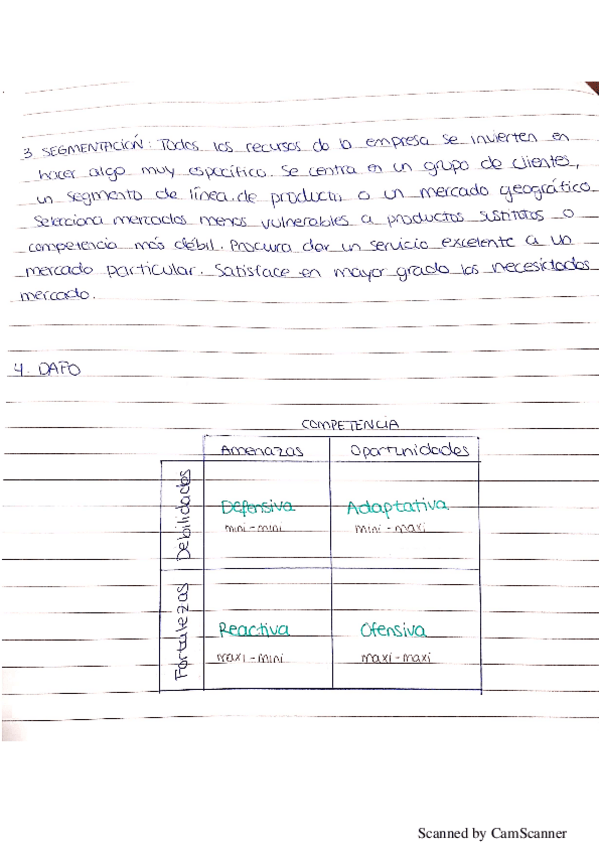 3 SEGMENTACIÓN: Todos los recursos de la empresa se invierten en
hacer algo muy específico. Se centra en un grupo de clientes,
un segmento de línea de product. o un mercado geográfico
Selecciona mercados menos vulnerables a productos sustitutos o
competencia más débil. Procura dar un servicio excelente a un
mercado particular. Satisface en mayor grado las necesidades
mercado.
4. DAFO
COMPETENCIA
Amenazas Oportunidades
Debilidades
Defensiva Adaptativa
mini-mini mini-maxi
Fortalezas
Reactiva Ofensiva
maxi-mini maxi-maxi
Scanned by CamScanner